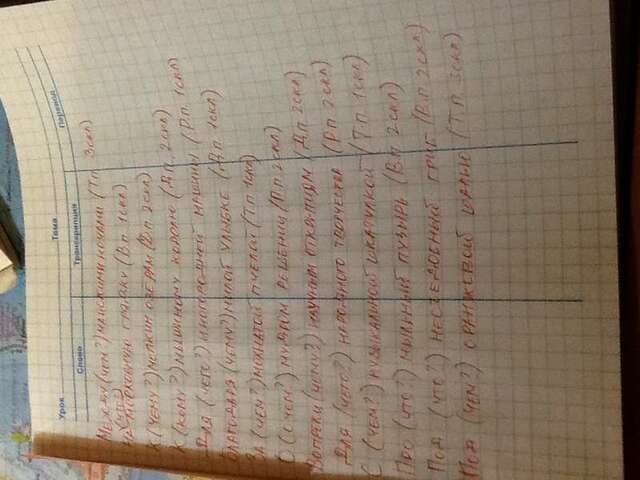 Урок Тема
Слово Транскрипция Перевод
Между (чем?) майскими ночами (Т.п. 3скл)
На (что?) морковную грядку (В.п. 1скл)
К (чему?) мелким озёрам (Д.п. 2скл)
К (кому?) мышиному королю (Д.п. 2скл)
Для (чего?) иногородней машины (Р.п. 1скл)
Благодаря (чему?) милой улыбке (Д.п. 1скл)
За (чем?) мохнатой пчелой (Т.п 1скл)
О (о чём?) мудром решении (П.п 2скл)
Вопреки (чему?) научным открытиям (Д.п 2скл)
Для (чего?) народного творчества (Р.п 2скл)
С (чем?) музыкальной шкатулкой (Т.п. 1скл)
Про (что?) мыльный пузырь (В.п 2скл)
Под (что?) несъедобный гриб (В.п. 2скл)
Под (чем?) оранжевой шалью (Т.п. 3скл)